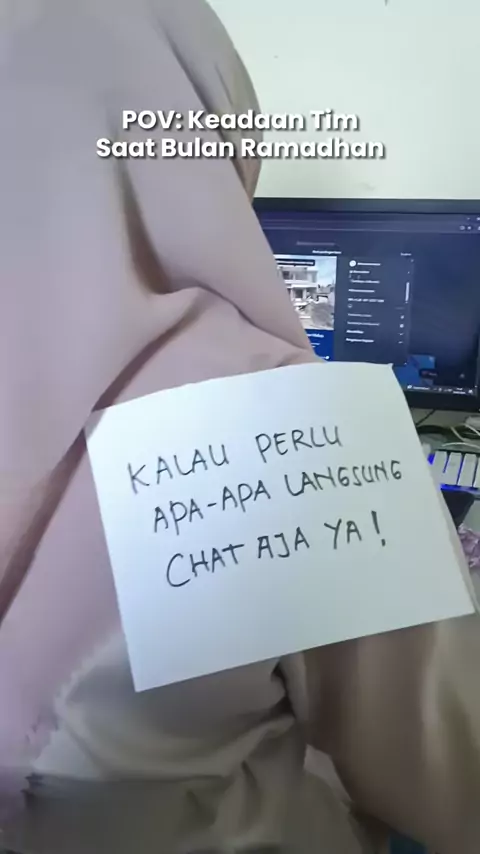 POV: Keadaan Tim
Saat Bulan Ramadhan
KALAU PERLU
APA-APA LANGSUNG
CHAT AJA YA!